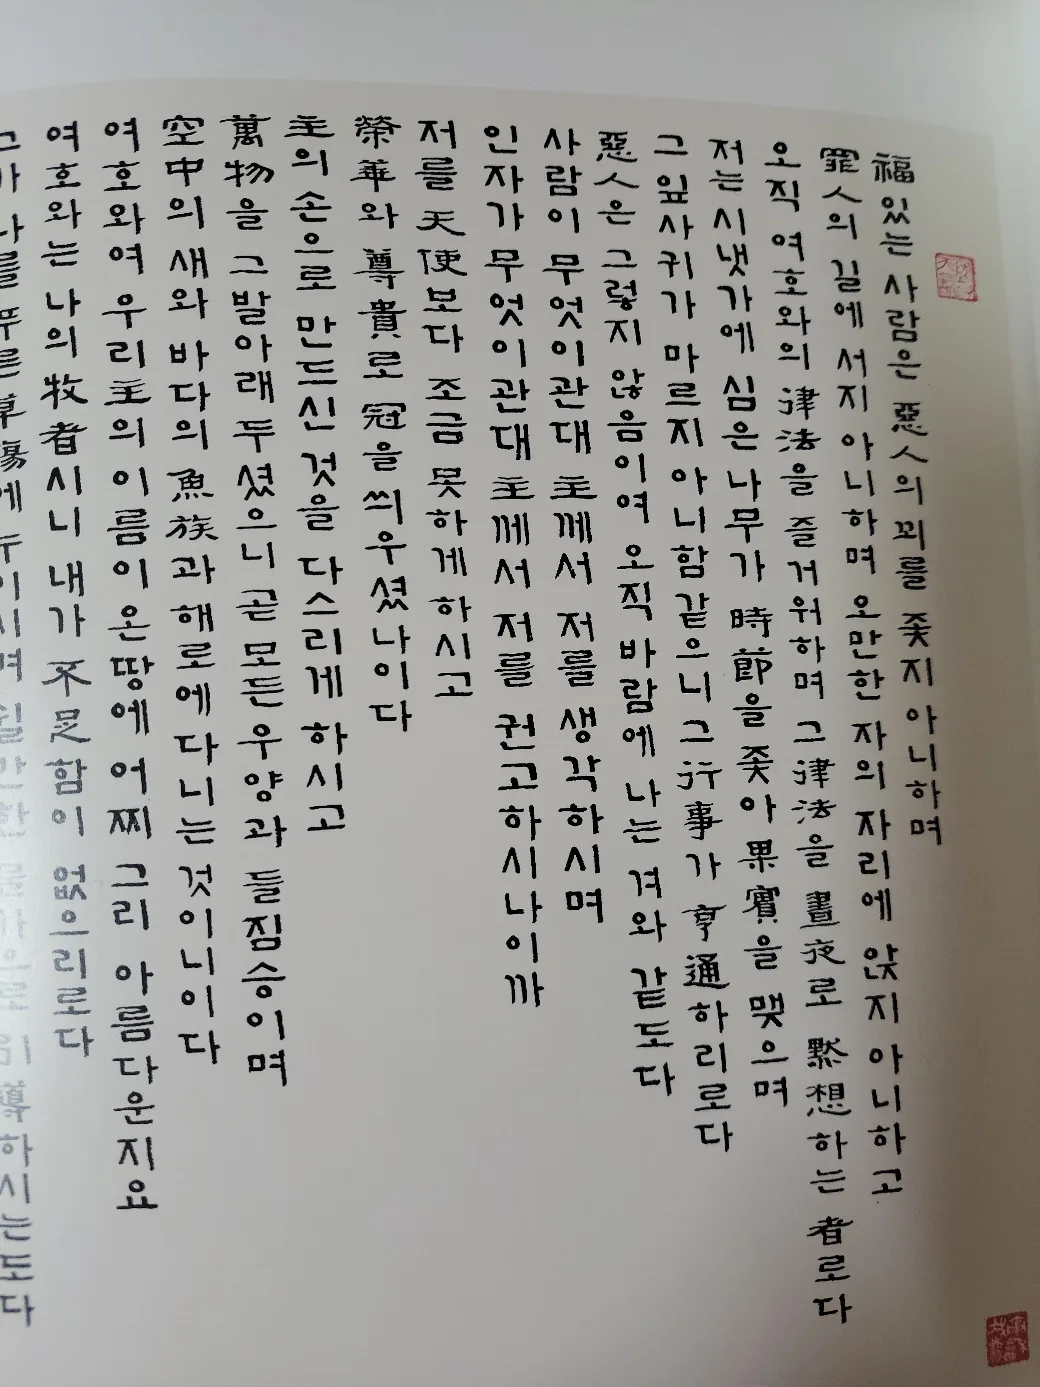 福있는 사람은 惡人의 꾀를 좇지 아니하며
罪人의 길에 서지 아니하며 오만한 자의 자리에 앉지 아니하고
오직 여호와의 律法을 즐거워하며 그 律法을 晝夜로 黙想하는 者로다
저는 시냇가에 심은 나무가 時節을 좇아 果實을 맺으며
그 잎사귀가 마르지 아니함 같으니 그 行事가 亨通하리로다
惡人은 그렇지 않음이여 오직 바람에 나는 겨와 같도다
사람이 무엇이관대 主께서 저를 생각하시며
인자가 무엇이관대 主께서 저를 권고하시나이까
저를 天使보다 조금 못하게 하시고
榮華와 尊貴로 冠을 씌우셨나이다
主의 손으로 만드신 것을 다스리게 하시고
萬物을 그 발아래 두셨으니 곧 모든 우양과 들짐승이며
空中의 새와 바다의 魚族과 해로에 다니는 것이니이다
여호와여 우리 主의 이름이 온 땅에 어찌 그리 아름다운지요
여호와는 나의 牧者시니 내가 不足함이 없으리로다
그가 나를 푸른 草場에 누이시며 쉴만한 물가으로 引導하시는도다